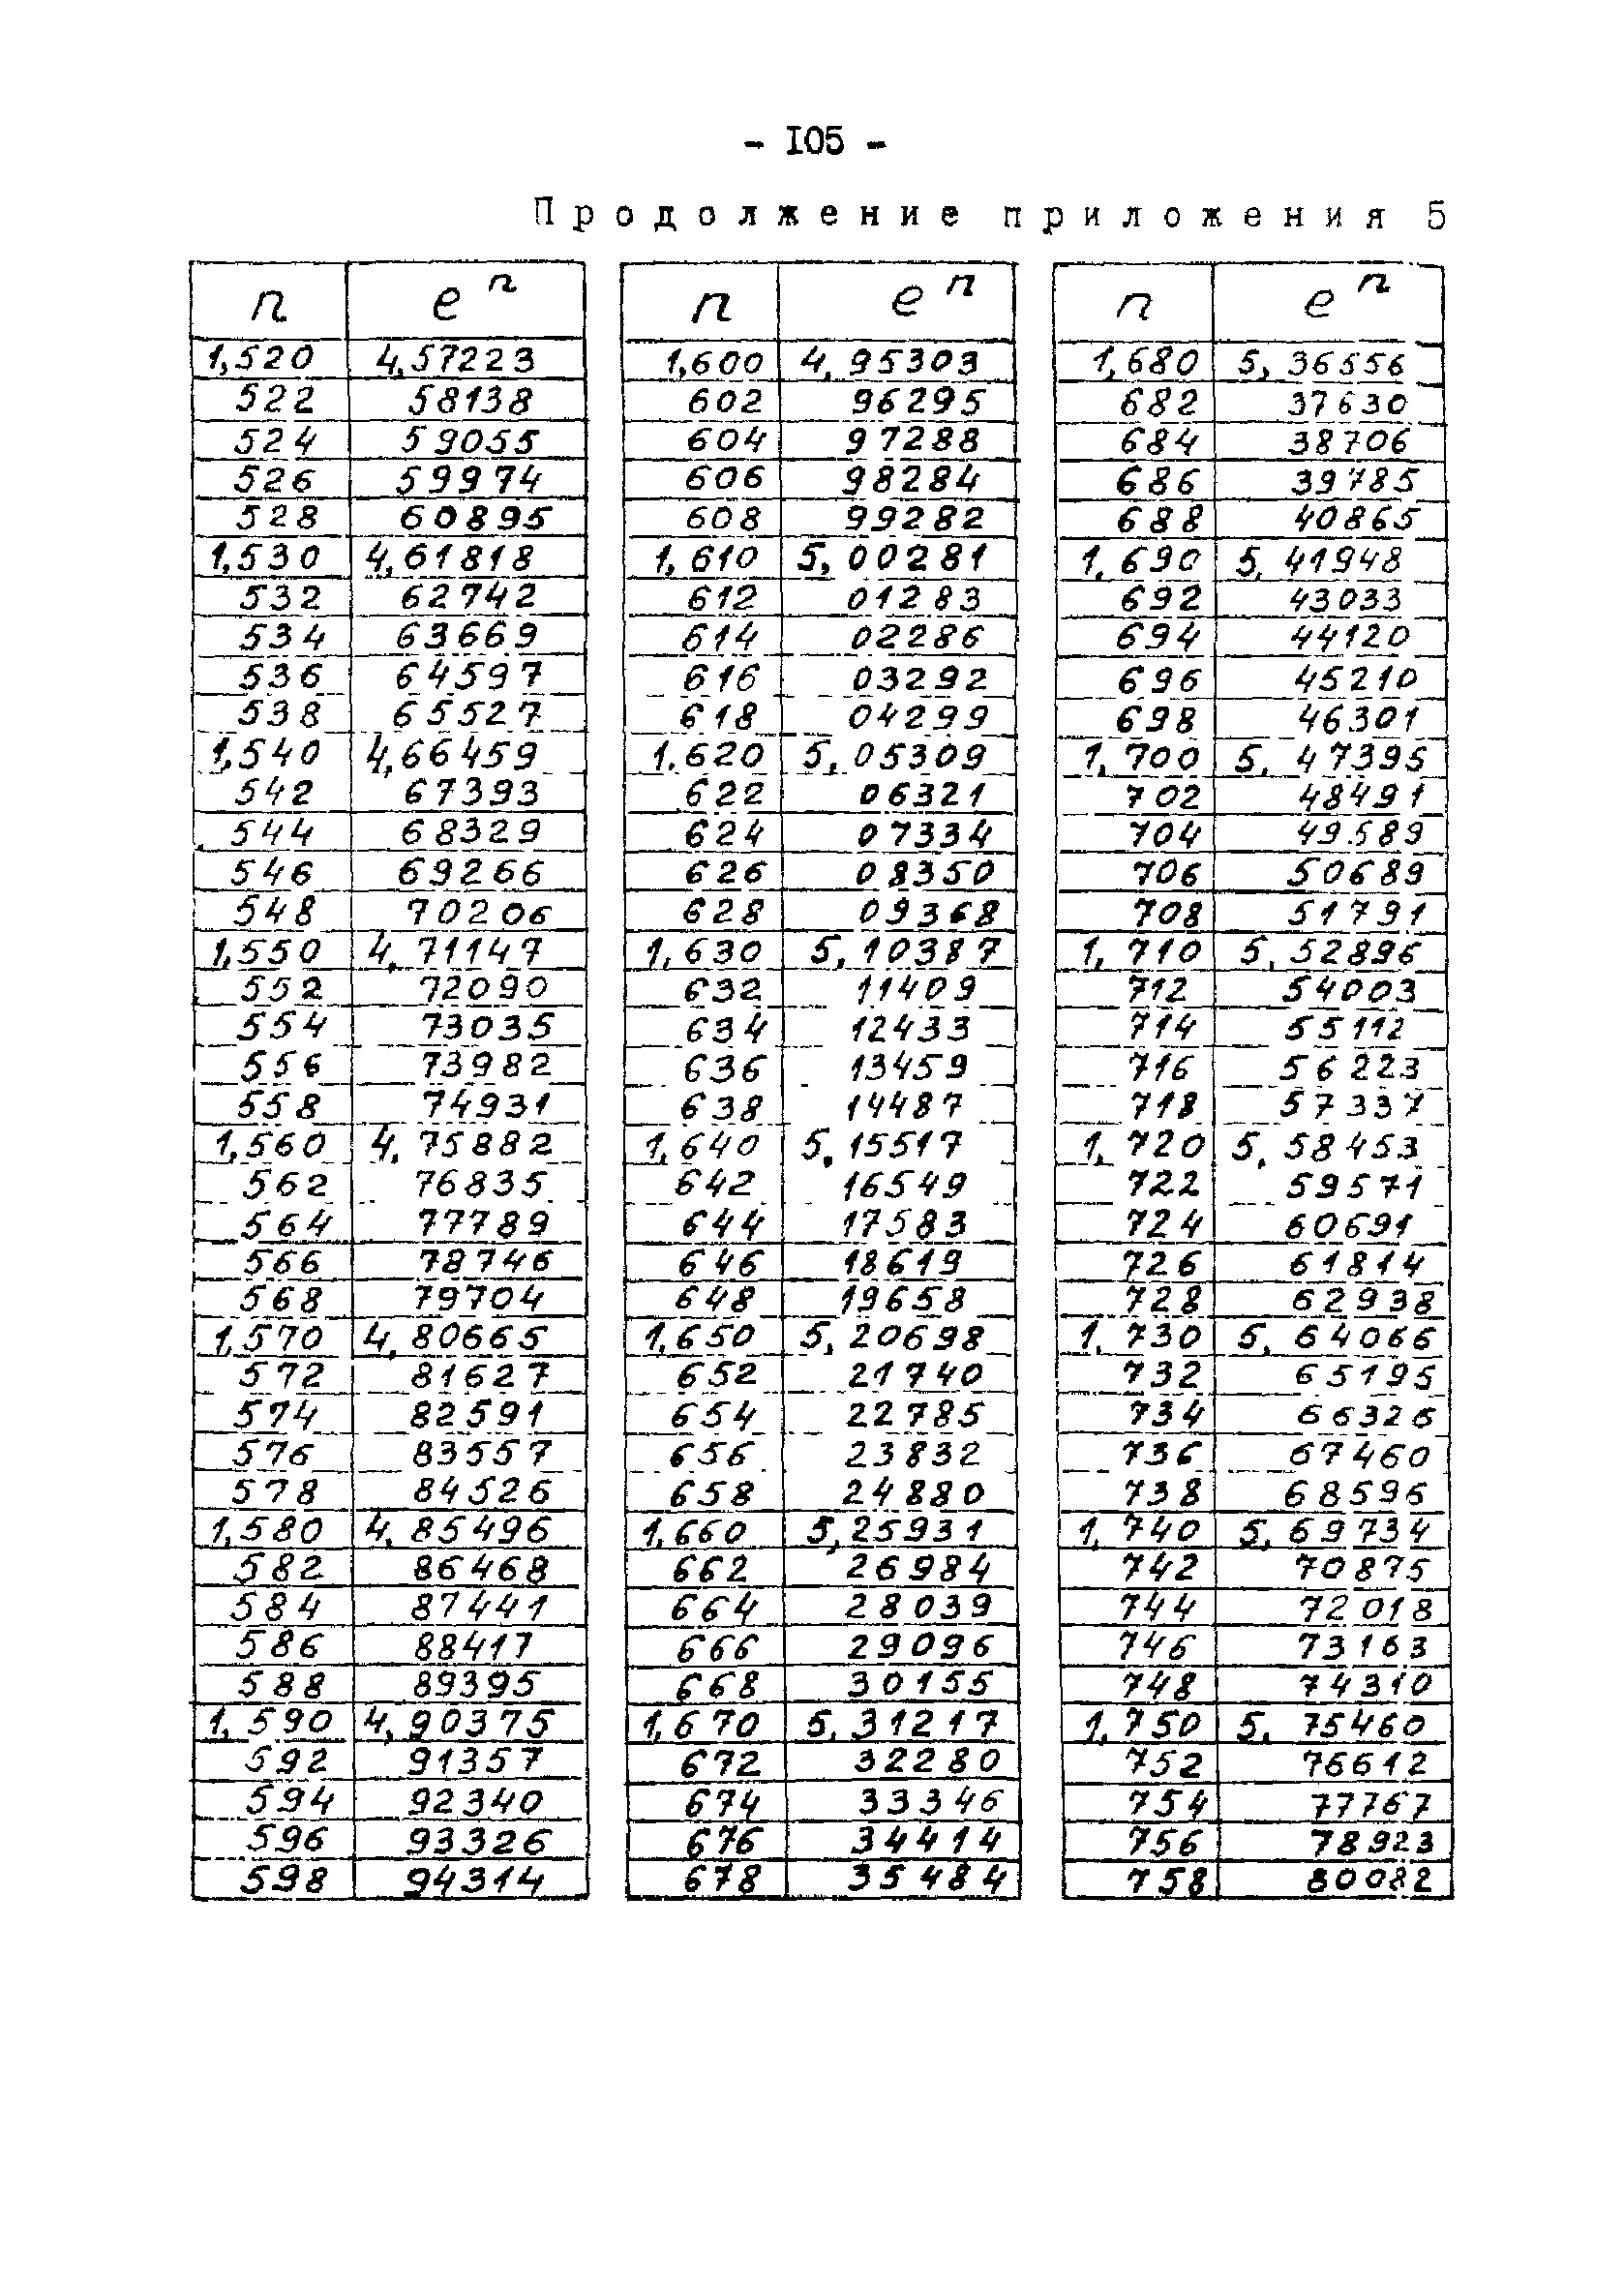 - I05 -
Продолжение приложения 5
n eⁿ n eⁿ n eⁿ
1,520 4,57223 1,600 4,95303 1,680 5,36556
522 58138 602 96295 682 37630
524 59055 604 97288 684 38706
526 59974 606 98284 686 39785
528 60895 608 99282 688 40865
1,530 4,61818 1,610 5,00281 1,690 5,41948
532 62742 612 01283 692 43033
534 63669 614 02286 694 44120
536 64597 616 03292 696 45210
538 65527 618 04299 698 46301
1,540 4,66459 1.620 5,05309 1,700 5,47395
542 67393 622 06321 702 48491
544 68329 624 07334 704 49589
546 69266 626 08350 706 50689
548 70206 628 09368 708 51791
1,550 4,71147 1,630 5,10387 1,710 5,52896
552 72090 632 11409 712 54003
554 73035 634 12433 714 55112
556 73982 636 13459 716 56223
558 74931 638 14487 718 57337
1,560 4,75882 1,640 5,15517 1,720 5,58453
562 76835 642 16549 722 59571
564 77789 644 17583 724 60691
566 78746 646 18619 726 61814
568 79704 648 19658 728 62938
1,570 4,80665 1,650 5,20698 1,730 5,64066
572 81627 652 21740 732 65195
574 82591 654 22785 734 66326
576 83557 656 23832 736 67460
578 84526 658 24880 738 68596
1,580 4,85496 1,660 5,25931 1,740 5,69734
582 86468 662 26984 742 70875
584 87441 664 28039 744 72018
586 88417 666 29096 746 73163
588 89395 668 30155 748 74310
1,590 4,90375 1,670 5,31217 1,750 5,75460
592 91357 672 32280 752 76612
594 92340 674 33346 754 77767
596 93326 676 34414 756 78923
598 94314 678 35484 758 80082